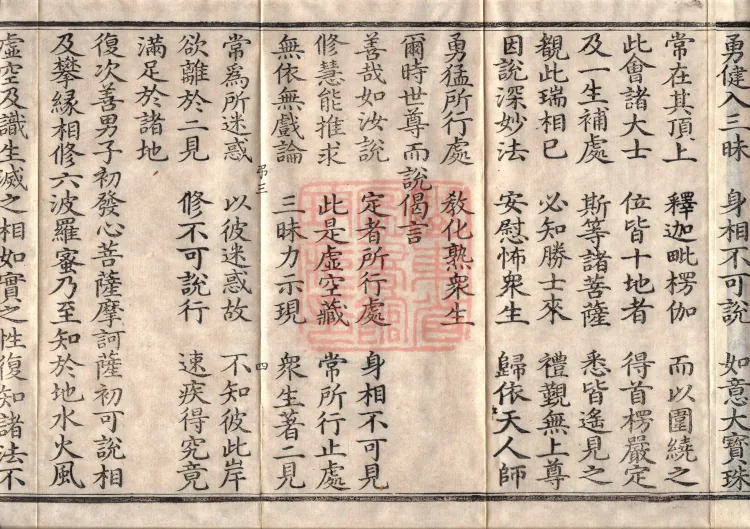 勇健入三昧　身相不可說　如意大寶珠
常在其頂上　釋迦毗楞伽　而以圍繞之
此會諸大士　位皆十地者　得首楞嚴定
及一生補處　斯等諸菩薩　悉皆遙見之
覩此瑞相已　必知勝士來　禮覲無上尊
因說深妙法　安慰怖衆生　歸依天人師
勇猛所行處　敎化熟衆生
爾時世尊而說偈言
善哉如汝說　定者所行處　身相不可見
修慧能推求　此是虛空藏　常所行止處
無依無戲論　三昧力示現　衆生著二見
常爲所迷惑　以彼迷惑故　不知彼此岸
欲離於二見　修不可說行　速疾得究竟
滿足於諸地
復次善男子初發心菩薩摩訶薩初可說相
及攀緣相修六波羅蜜乃至知於地水火風
虛空及識生滅之相如實之性復知諸法不
三
四